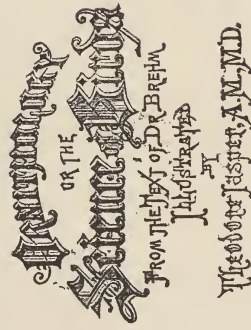 Ornithology
OR THE
Science of Birds
FROM THE TEXT OF DR BREHM
ILLUSTRATED
BY
THEODORE JASPER, A.M.M.D.